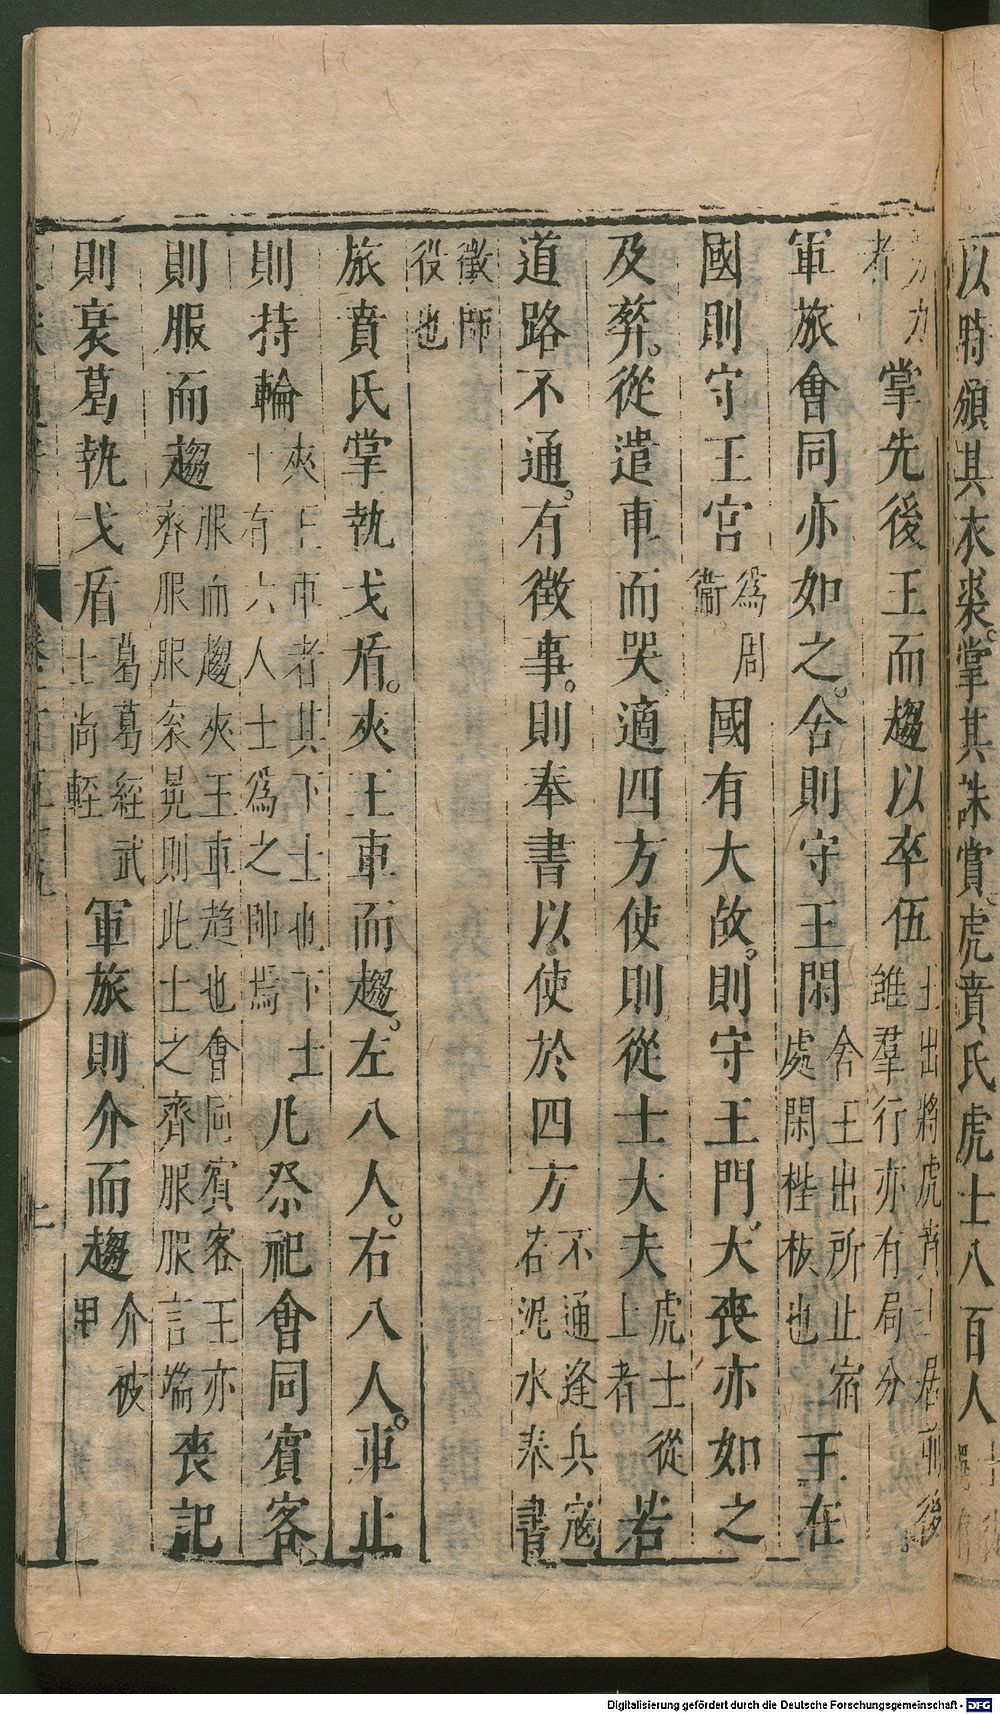 以時頒其衣裘掌其誅賞虎賁氏虎士八百人
者
力
掌先後王而趨以卒伍王出將虎賁士居前後
雖羣行亦有局分
軍旅會同亦如之舍則守王閑舍王出所止宿
處閑梐枑也王在
國則守王宮為周
衛國有大故則守王門大喪亦如之
及葬從遣車而哭適四方使則從士大夫虎士從
士者若
道路不通有徵事則奉書以使於四方不通逢兵寇
若泥水奉書
徵師
役也
旅賁氏掌執戈盾夾王車而趨左八人右八人車止
則持輪夾王車者其下士也下士
十有六人士為之帥焉凡祭祀會同賓客
則服而趨服而趨夾王車趨也會同賓客王亦
齊服服袞冕則此士之齊服服言端喪記
則衰葛執戈盾葛葛絰武
士尚輕軍旅則介而趨介被
甲
Digitalisierung gefördert durch die Deutsche Forschungsgemeinschaft - DFG